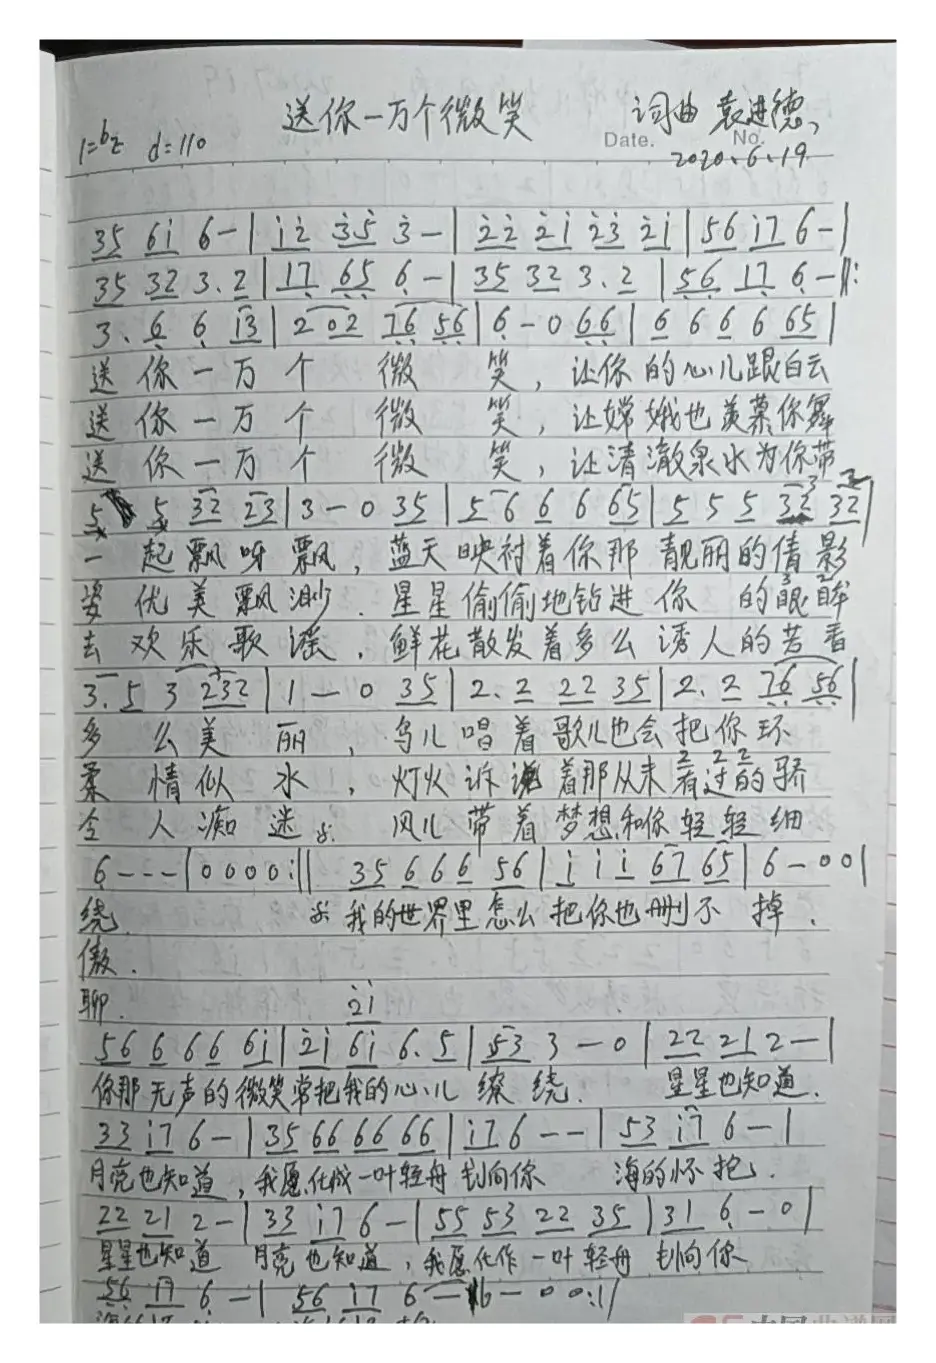 送你一万个微笑 词曲 袁进德、
1=bE d=110 Date. No.
2020、6、19
35 6i 6 - | i2 35 3 - | 22 2i 23 2i | 56 i7 6 - |
35 32 3. 2 | 17 65 6 - | 35 32 3. 2 | 56 17 6 - ‖:
3. 6 6 13 | 2 02 76 56 | 6 - 0 66 | 6 6 6 6 65 |
送你一万个微笑，让你的心儿跟白云
送你一万个微笑，让嫦娥也羡慕你舞
送你一万个微笑，让清澈泉水为你带
5 5 32 23 | 3 - 0 35 | 5 6 6 6 65 | 5 5 5 32 32 |
一起飘呀飘，蓝天映衬着你那靓丽的倩影
姿优美飘渺．星星偷偷地钻进你的眼眸
去欢乐歌谣．鲜花散发着多么诱人的芳香
3. 5 3 232 | 1 - 0 35 | 2. 2 22 35 | 2. 2 76 56 |
多么美丽，鸟儿唱着歌儿也会把你环
柔情似水，灯火诉说着那从未有过的骄
令人痴迷 风儿带着梦想和你轻轻细
6 - - - | 0 0 0 0 :‖ 35 6 6 6 56 | i i i 67 65 | 6 - 0 0 |
绕． 我的世界里怎么把你也删不掉．
傲．
聊．
2i
56 6 66 6i | 2i 6i 6. 5 | 53 3 - 0 | 22 21 2 - |
你那无声的微笑常把我的心儿缭绕． 星星也知道．
33 i7 6 - | 35 66 66 66 | i7 6 - - | 53 i7 6 - |
月亮也知道，我愿化成一叶轻舟划向你 海的怀抱．
22 21 2 - | 33 i7 6 - | 55 53 22 35 | 31 6 - 0 |
星星也知道 月亮也知道，我愿化作一叶轻舟 划向你
56 17 6 - | 56 17 6 - 6 - 0 0 :‖